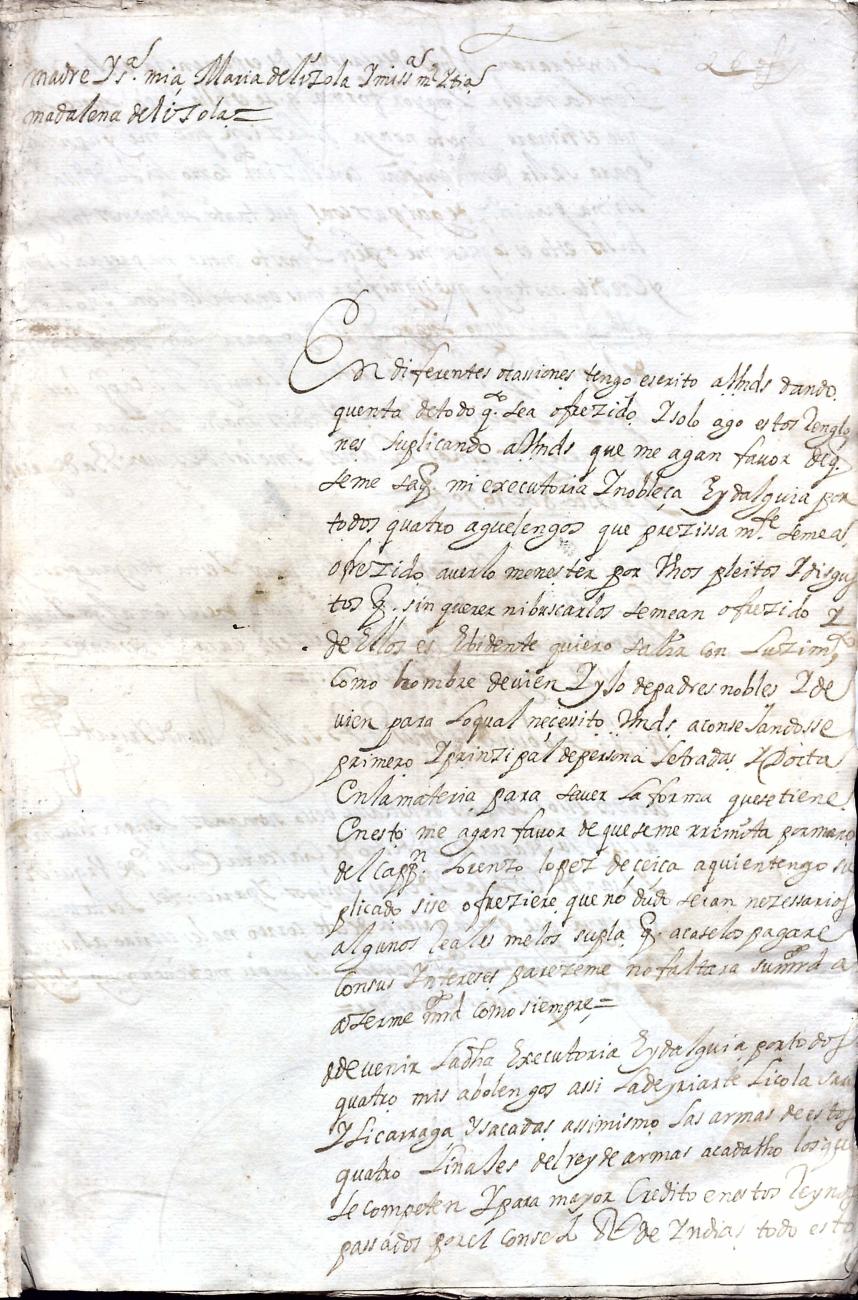 madre Y sra. mia, Maria de lizola Y miss as mis tias
madalena de liZola =
En diferentes ocassiones tengo escrito a Vmds dando
quenta de todo q. sea ofrezido Y solo ago estos Renglo
nes suplicando a Vmds que me agan favor de q.
seme saq. mi executoria Y nobleça EydalguiA por
todos quatro aguelengos que prezissa mte. seme a
ofrezido averlo menester por Vhos pleitos Y disgus
tos q. sin querer ni buscarlos semean ofrezido Y
de Ellos es Ebidente quiero salir con Luzimto
Como hombre de vien Y yjo de padres nobles Y de
vien para Loqual neçessito Vmds aconseJandosse
primero Y prinzipal de persna Letradas Y Docta
En la materia para saver La forma que setiene
Enesto me agan favor de que seme rremita por mano
del Cappn. Lorenzo lopez de çeiça aquien tengo su
plicado sise ofreziere que no dudo seran nezessarios
algunos Reales melos supla q. aca selos pagare
Consus Yntereses pareZeme no faltara sumrd a
aZerme md como siempre =
a de venir La dha Executoria Eydalguia por todos
quatro mis abolengos assi La de yriarte Liçola
Y Licarraga Y sacadas assimismo Las armas de estos
quatro Linajes del rey de armas acada tho los que
se competen Y para mayor Credito enestos Reynos
passados por el Consejo Rl de Yndias todo esto